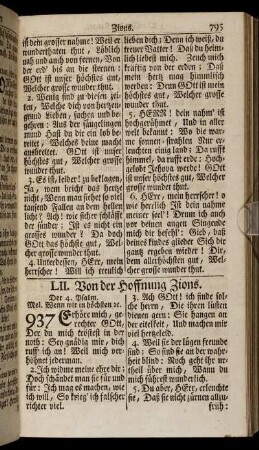 Zions.
795
ist dein grosser nahme! Weil er
wunderthaten thut, Löblich
nah und auch von fernen, Von
der erd' bis an die sternen:
GOtt ist unser höchstes gut,
Welcher grosse wunder thut.
2. Wenig sind zu diesen
zeiten, Welche dich von hertzens-
grund Lieben, suchen und be-
gehren: Aus der säuglingen
mund Hast du dir ein lob be-
reitet, Welches deine macht
ausbreitet. GOtt ist unser
höchstes gut, Welcher grosse
wunder thut.
3. Es ist, leider! zu beklagen,
Ja, wem bricht das hertze
nicht, Wenn man siehet so viel
fallen An dem hellen tages-
licht: Ach! wie sicher schläfft
der sünder! Ist es nicht ein
grosses wunder? Da doch
GOtt das höchste gut, Wel-
cher grosse wunder thut.
4. Unterdessen, HErr, mein
herrscher! Will ich treulich
lieben dich; Denn ich weiß, du
treuer Vatter! Daß du heim-
lich liebest mich. Zeuch mich
kräftig von der erden; Daß
mein hertz mag himmlisch
werden: Denn GOtt ist mein
höchstes gut, Welcher grosse
wunder thut.
5. HERR! dein nahm' ist
hochgerühmet, Und in aller
welt bekannt: Wo die war-
me sonnen-strahlen Nur er-
leuchten einig land: Da rufft
himmel, da rufft erde: Hoch-
gelobt Jehova werde! GOtt
ist unser höchstes gut, Welcher
grosse wunder thut.
6. HErr, mein herrscher! o
wie herrlich Ist dein nahme
meiner seel! Drum ich auch
vor deinen augen Singende
mich dir befehl! Gieb, daß
deines kindes glieder Sich dir
gantz ergeben wieder: Die-
sem allerhöchsten gut, Welcher
grosse wunder thut.
LII. Von der Hoffnung Zions.
Der 4. Psalm.
Mel. Wann wir in höchsten ꝛc.
937 Erhöre mich, ge-
rechter GOtt,
Der du mich tröstest in der
noth: Sey gnädig mir, dich
ruff ich an! Weil mich ver-
höhnet jederman.
2. Ich widme meine ehre dir:
Doch schändet man sie für und
für: Ich mag es machen, wie
ich will, So krieg' ich falscher
richter viel.
3. Ach GOtt! ich finde sol-
che herrn, Die ihren lüsten
dienen gern: Sie hangen an
der eitelkeit, Und machen mir
viel hertzeleid.
4. Weil sie der lügen freunde
sind: So sind sie an der wahr-
heit blind: Noch geht ihr ur-
theil über mich, Wann du
mich führest wunderlich.
5. Du aber, HErr, erleuchte
sie, Daß sie nicht zürnen allzu-
fruh: